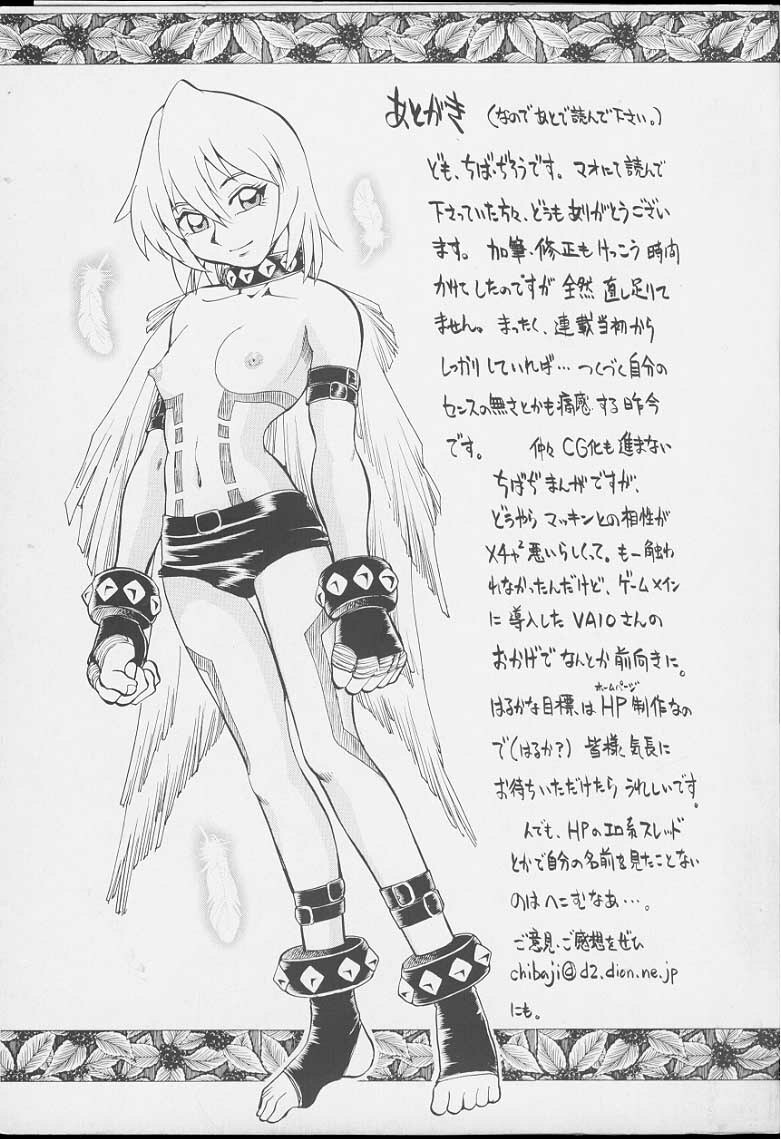 あとがき（なのであとで読んで下さい。）
ども、ちば・ぢろうです。マオにて読んで
下さっていた方々、どうもありがとうござい
ます。加筆・修正もけっこう時間
かけてしたのですが全然直し足りて
ません。まったく、連載当初から
しっかりしていれば…つくづく自分の
センスの無さとかも痛感する昨今
です。 仲々CG化も進まない
ちばぢまんがですが、
どうやらマッキンとの相性が
メチャ²悪いらしくって。も一触わ
れなかったんだけど、ゲームメイン
に導入したVAIOさんの
おかげでなんとか前向きに。
ホームページ
はるかな目標、はHP制作なの
で（はるか？）皆様、気長に
お待ちいただけたらうれしいです。
んでも、HPのエロ系スレッド
とかで自分の名前を見たことない
のはへこむなあ…。
ご意見・ご感想をぜひ
chibaji@d2.dion.ne.jp
にも。